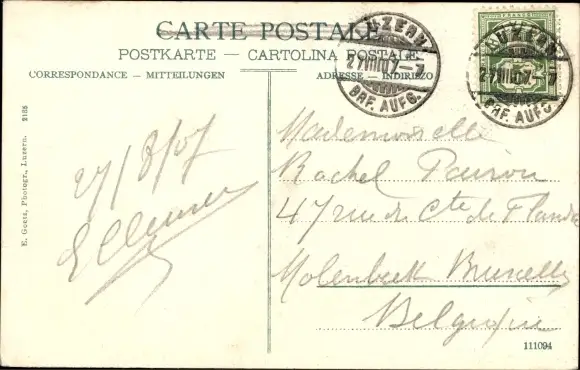 CARTE POSTALE
POSTKARTE — CARTOLINA POSTALE
CORRESPONDANCE – MITTEILUNGEN
ADRESSE – INDIRIZZO
LUZERN
27.VIII.07–7
BRF. AUFG.
FRANCO
LUZERN
27.VIII.07–7
BRF. AUFG.
E. Goetz, Photogr., Luzern. 2135
27/8/07
Mademoiselle
Rachel
47 rue du Cte de Flandre
Molenbeek Bruxelles
Belgique
111094